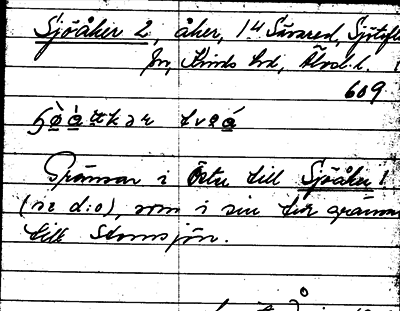 Sjöåker 2, åker, 1/4 Sävared, Sjötofta
sn, Kinds hd, Älvsb. l.
609
tvåa
Gränsar i öster till Sjöåker 1
(se d:o), som i sin tur gränsar
till Stomsjön.